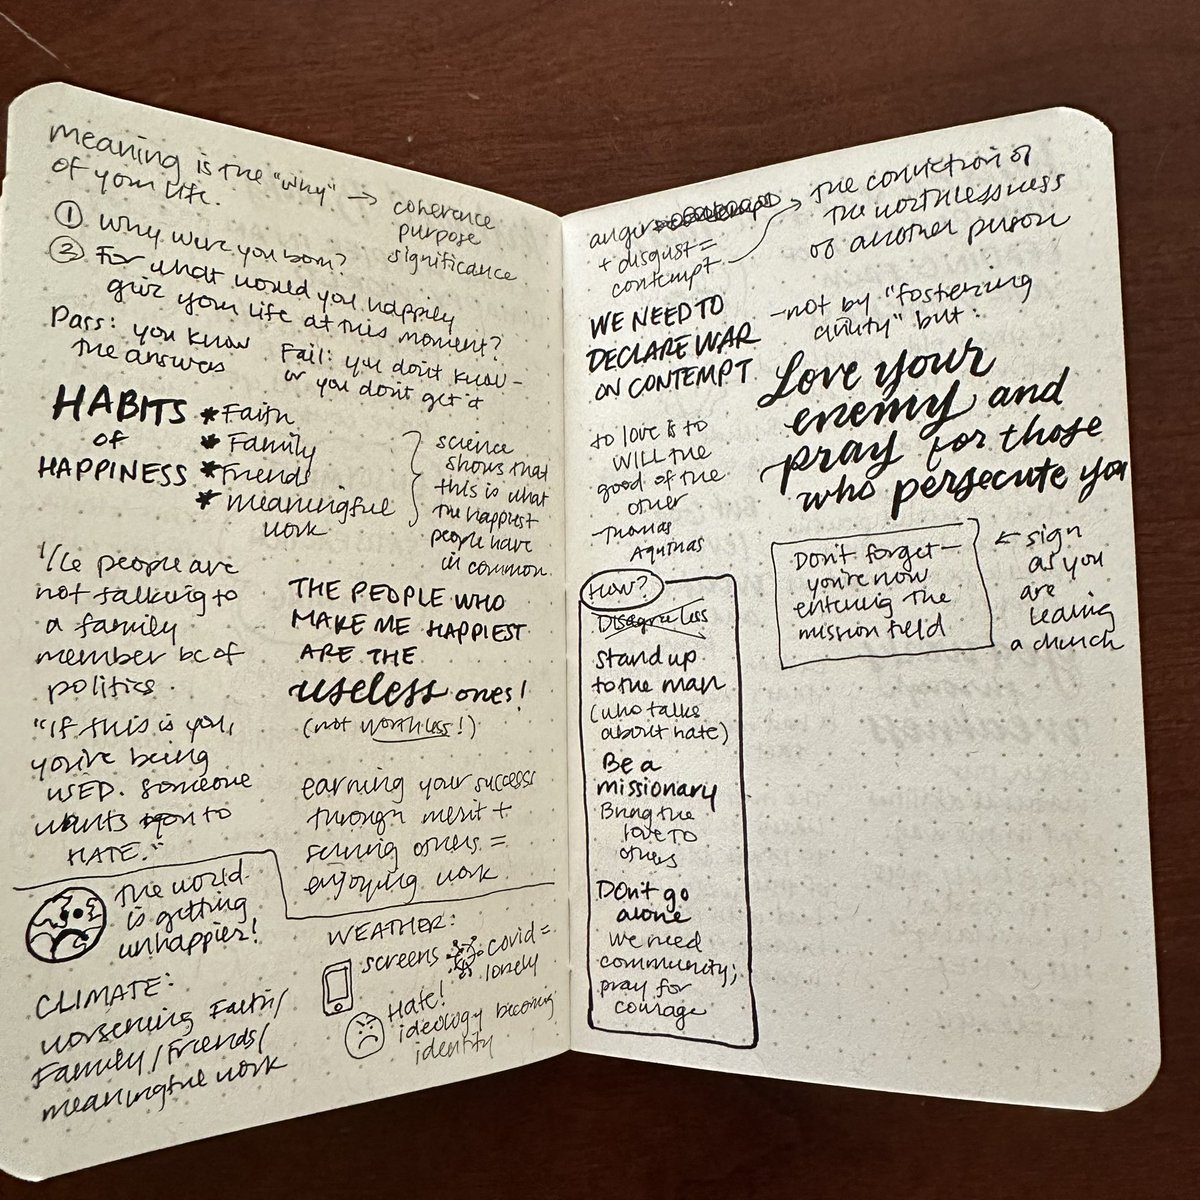 meaning is the "why" → coherence
of your life.
purpose
significance
① Why were you born?
② For what would you happily
give your life at this moment?
Pass: you know
the answers
Fail: you don't know –
or you don't get it
HABITS
OF
HAPPINESS
* Faith
* Family
* Friends
* meaningful
work
science
shows that
this is what
the happiest
people have
in common.
1/6 people are
not talking to
a family
member bc of
politics.
"If this is you,
you're being
USED. Someone
wants you to
HATE."
THE PEOPLE WHO
MAKE ME HAPPIEST
ARE THE
useless ones!
(not worthless!)
earning your success
through merit +
serving others =
enjoying work
The world
is getting
unhappier!
CLIMATE:
worsening Faith/
Family/Friends/
meaningful work
WEATHER:
screens
covid =
lonely
Hate!
ideology becoming
identity
anger
+ disgust =
contempt
→ the conviction of
the worthlessness
of another person
WE NEED TO
DECLARE WAR
ON CONTEMPT
– not by "fostering
civility" but:
Love your
enemy and
pray for those
who persecute you
to love is to
WILL the
good of the
other
– Thomas
Aquinas
HOW?
Disagree less
Stand up
to the man
(who talks
about hate)
Be a
missionary
Bring the
love TO
others
Don't go
alone
we need
community;
pray for
courage
Don't forget –
you're now
entering the
mission field
← sign
as you
are
leaving
a church